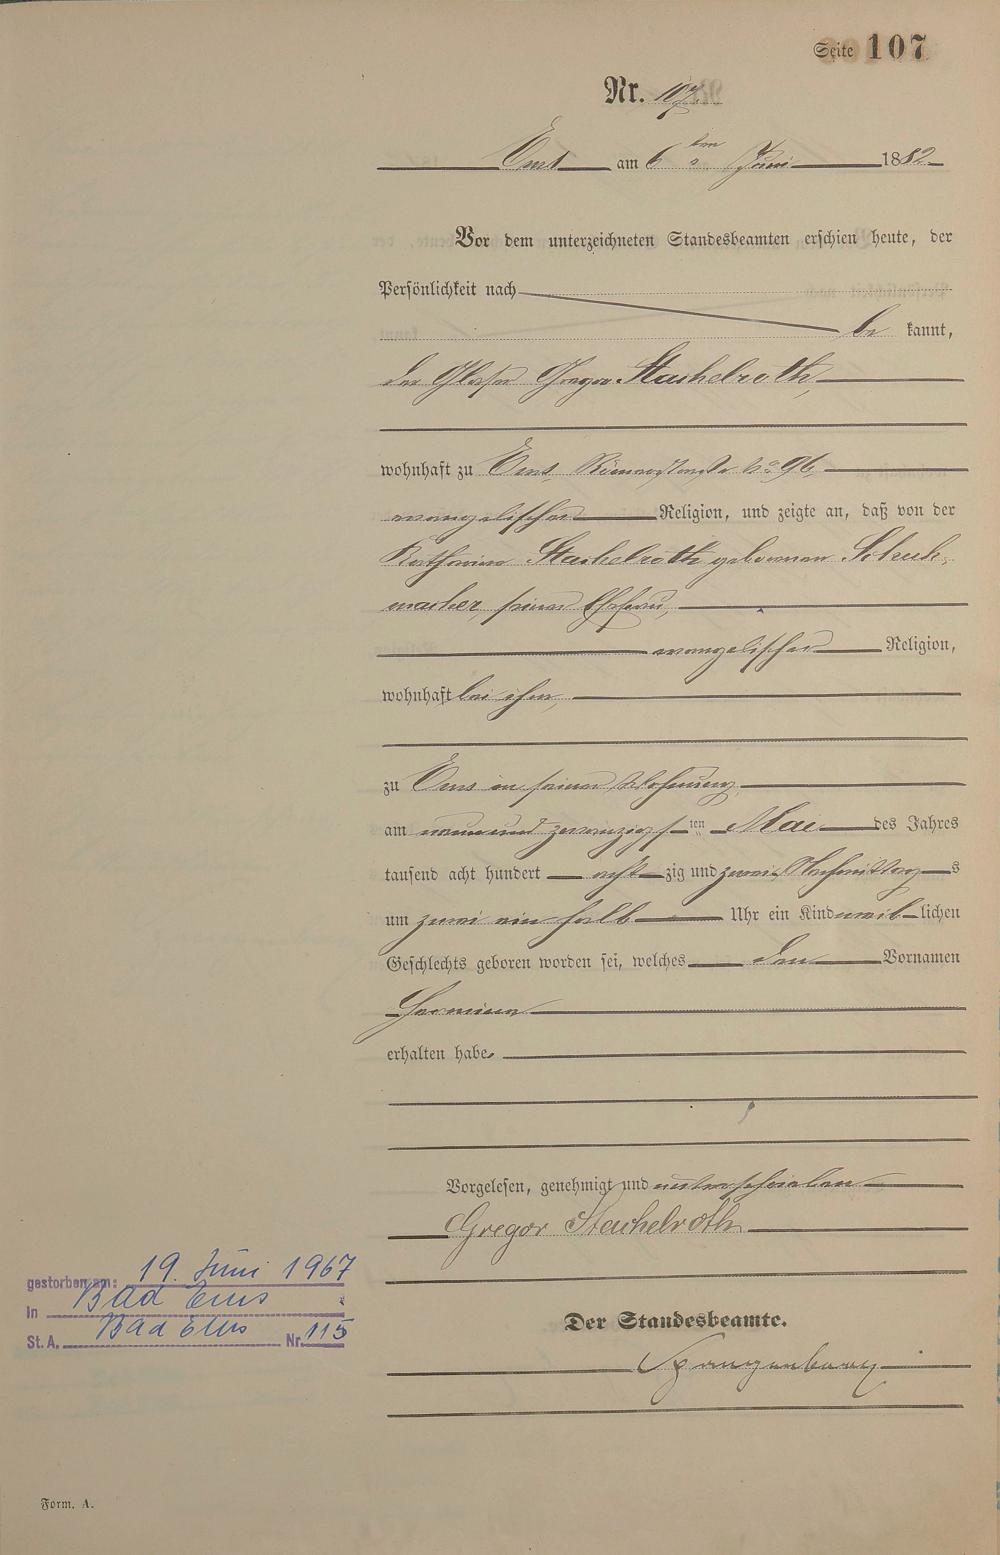 Seite 107
Nr. 107.
Ems am 6ten Juni 1882
Vor dem unterzeichneten Standesbeamten erschien heute, der
Persönlichkeit nach
be kannt,
der Glaser Gregor Stachelroth,
wohnhaft zu Ems, No 96
evangelischer Religion, und zeigte an, daß von der
Katharina Stachelroth geborenen Schuh-
macher, seiner Ehefrau,
evangelischer Religion,
wohnhaft bei ihm,
zu Ems in seiner Wohnung,
am neunund zwanzigsten Mai des Jahres
tausend acht hundert acht zig und zwei Nachmittags
um zwei ein halb Uhr ein Kind weiblichen
Geschlechts geboren worden sei, welches den Vornamen
Hermine
erhalten habe
Vorgelesen, genehmigt und unterschrieben
Gregor Stachelroth
gestorben am: 19. Juni 1967
In Bad Ems
St. A. Bad Ems Nr. 115
Der Standesbeamte.
Spangenberg
Form. A.